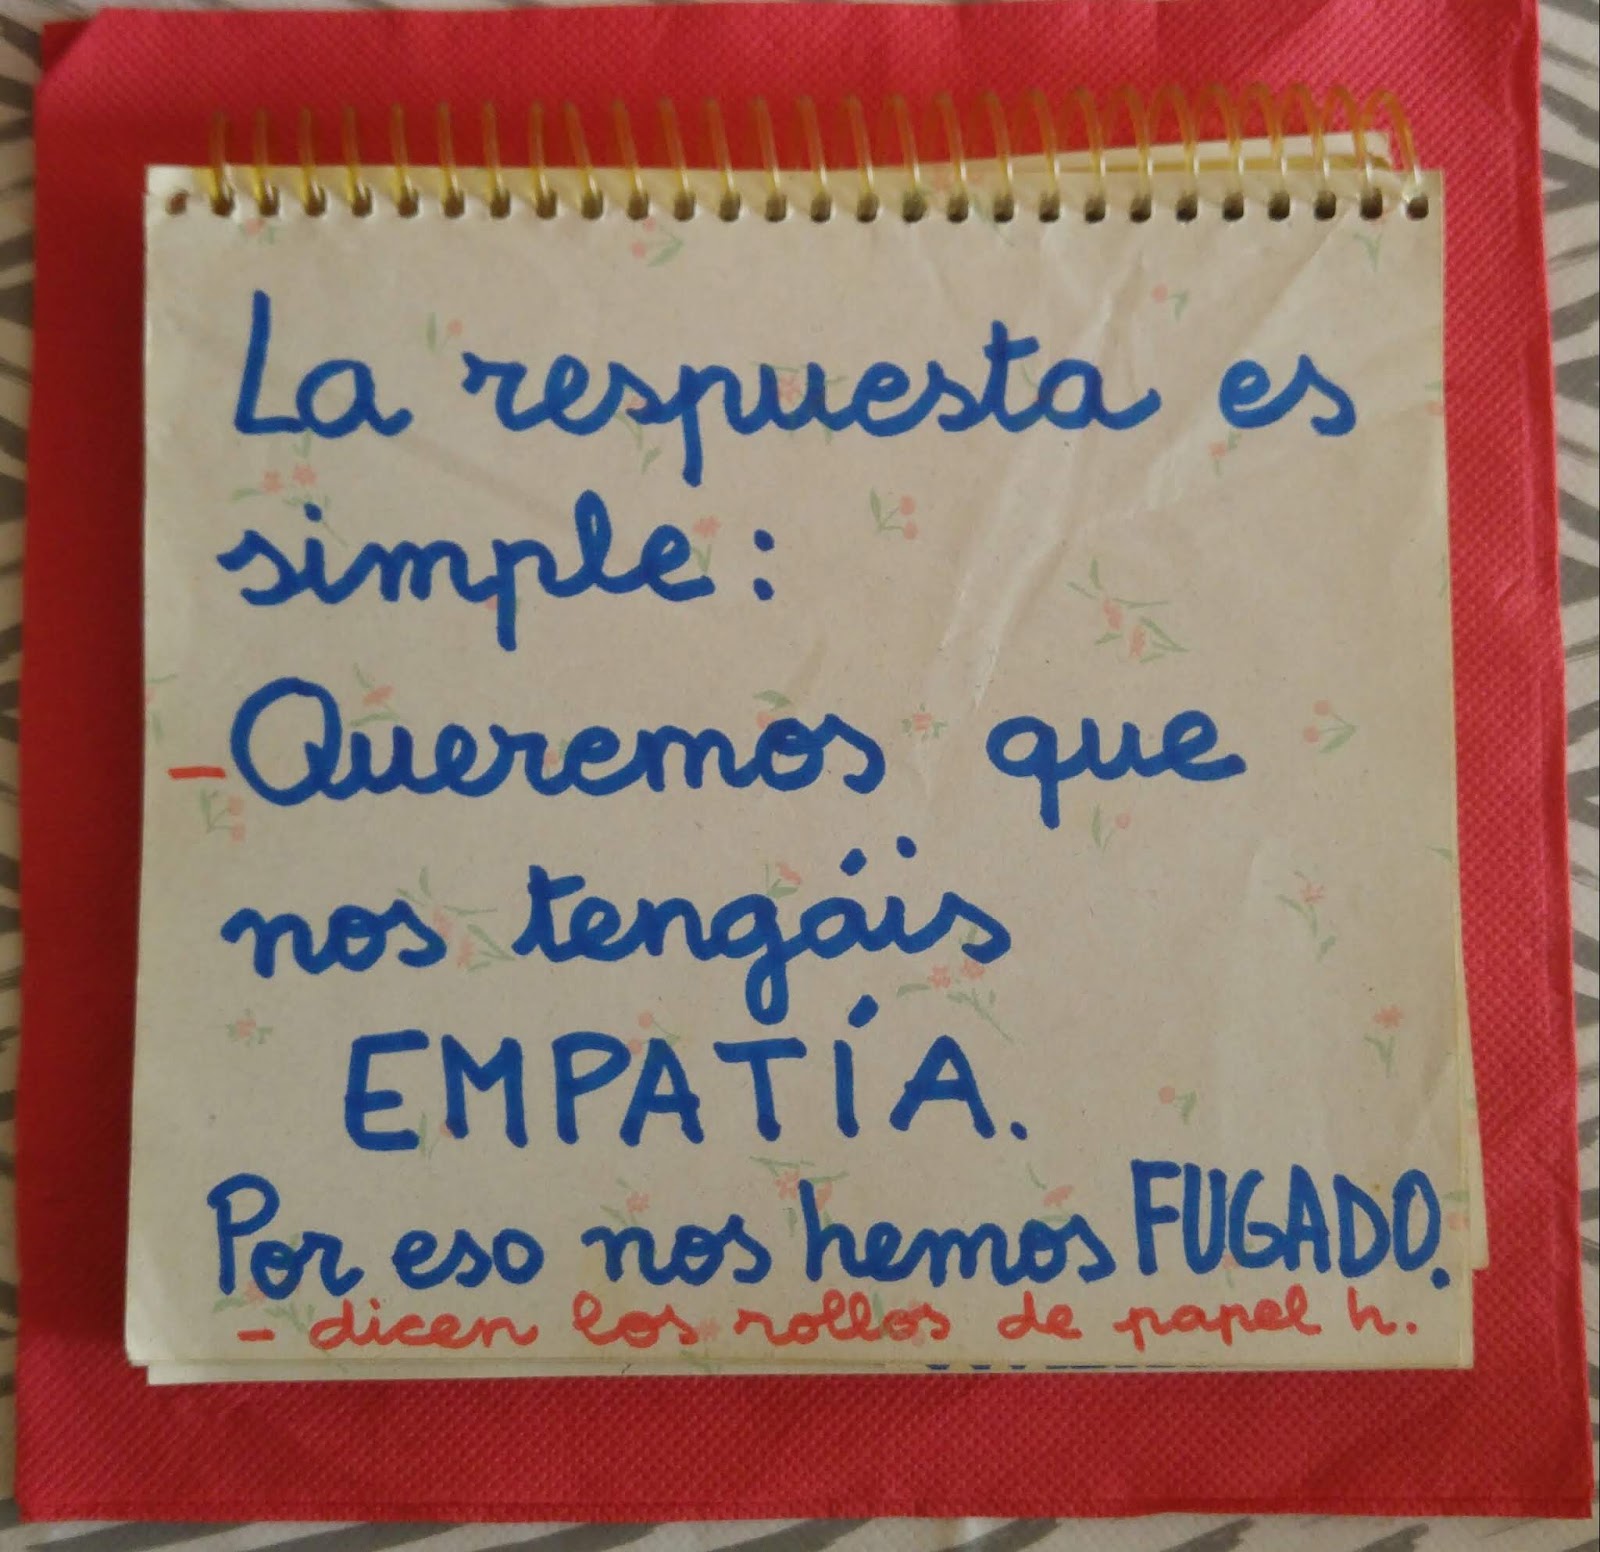 La respuesta es
simple:
-Queremos que
nos tengáis
EMPATÍA.
Por eso nos hemos FUGADO.
- dicen los rollos de papel h.